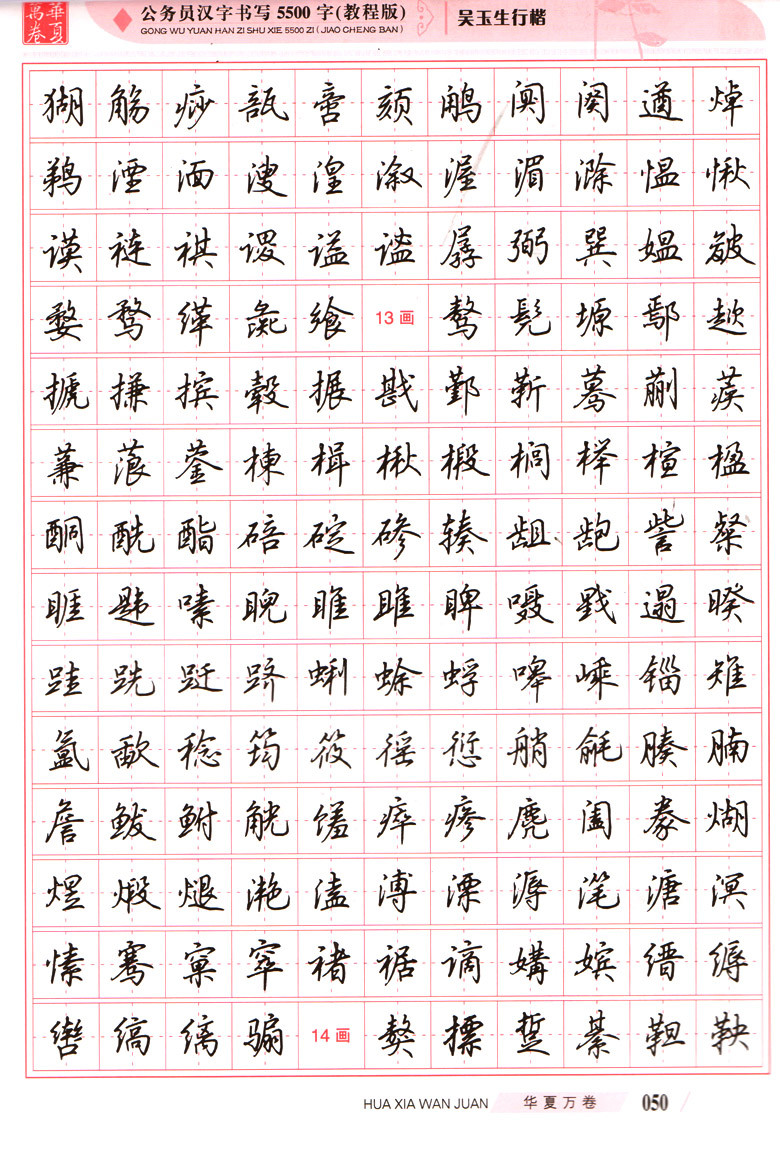 華夏萬卷
公务员汉字书写 5500 字(教程版)
GONG WU YUAN HAN ZI SHU XIE 5500 ZI (JIAO CHENG BAN)
吴玉生行楷
猢 觞 痧 瓿 啻 颏 鹇 阒 阕 遒 焯
鹈 湮 湎 溲 湟 溆 渥 湄 滁 愠 愀
谟 裢 祺 谡 谥 谧 孱 弼 巽 媪 皴
婺 骛 缂 彘 飨 13 画 骜 髡 塬 鄢 趑
搋 搛 摈 毂 搌 戡 鄞 靳 蓦 蒯 蒺
蒹 蒗 蓥 楝 楫 楸 椴 榈 榉 楦 楹
酮 酰 酯 碚 碇 碜 辏 龃 龅 訾 粲
睚 韪 嗉 睨 睢 雎 睥 嗫 戥 遢 暌
跬 跣 跹 跻 蜊 蜍 蜉 嗥 嵊 锱 雉
氲 歃 稔 筠 筱 徭 愆 艄 毹 腠 腩
詹 鲅 鲋 觥 馐 瘁 瘆 麂 阖 豢 煳
煜 煅 煺 滟 溘 溥 溧 溽 滗 溏 溟
愫 骞 窠 窣 褚 裾 谪 媾 嫔 缙 缛
辔 缟 缡 骟 14 画 獒 摽 踅 綦 靼 鞅
HUA XIA WAN JUAN 华夏万卷 050